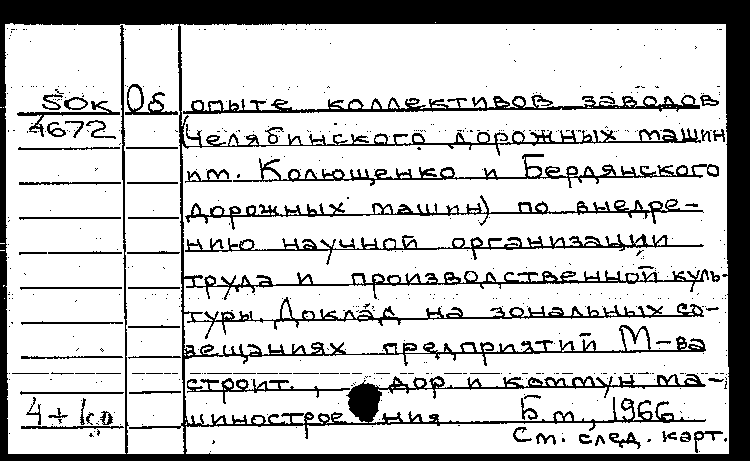 50к Об опыте коллективов заводов
4672 (Челябинского дорожных машин
им. Колющенко и Бердянского
дорожных машин) по внедре-
нию научной организации
труда и производственной куль-
туры. Доклад на зональных со-
вещаниях предприятий М-ва
строит., дор. и коммун. ма-
4+ко шиностроения. Б.м., 1966.
См. след. карт.